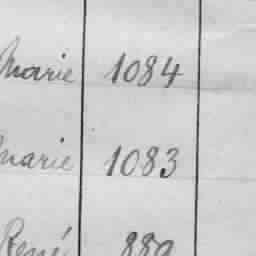 Marie 1084
Marie 1083
René 889